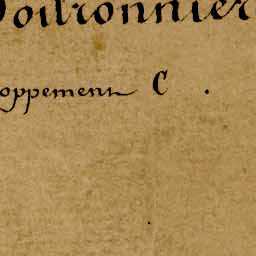 Poitronnier
oppement C .